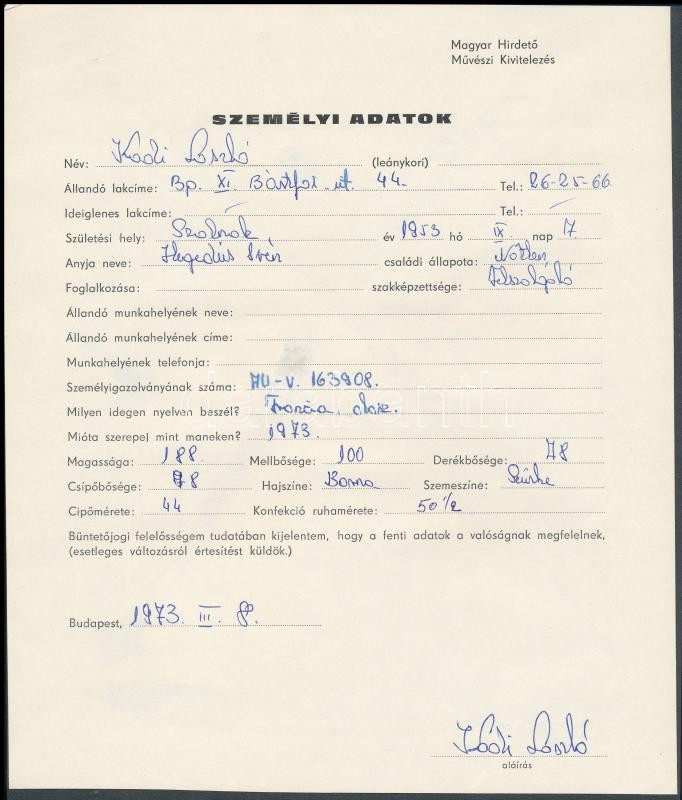 Magyar Hirdető
Művészi Kivitelezés
SZEMÉLYI ADATOK
Név: Kadi László (leánykori)
Állandó lakcíme: Bp. XI. Bártfai út. 44. Tel.: 26-25-66.
Ideiglenes lakcíme: Tel.:
Születési hely: Szolnok, év 1953 hó IX. nap 17.
Anyja neve: Hegedüs Irén családi állapota: Nőtlen
Foglalkozása: szakképzettsége: Felszolgáló
Állandó munkahelyének neve:
Állandó munkahelyének címe:
Munkahelyének telefonja:
Személyigazolványának száma: AU-V. 163908.
Milyen idegen nyelven beszél? Francia, olasz.
Mióta szerepel mint maneken? 1973.
Magassága: 188. Mellbősége: 100 Derékbősége: 78
Csípőbősége: 98 Hajszíne: Barna Szemeszíne: Szürke
Cipőmérete: 44 Konfekció ruhamérete: 50 1/2
Büntetőjogi felelősségem tudatában kijelentem, hogy a fenti adatok a valóságnak megfelelnek,
(esetleges változásról értesítést küldök.)
Budapest, 1973. III. 8.
Kadi László
aláírás